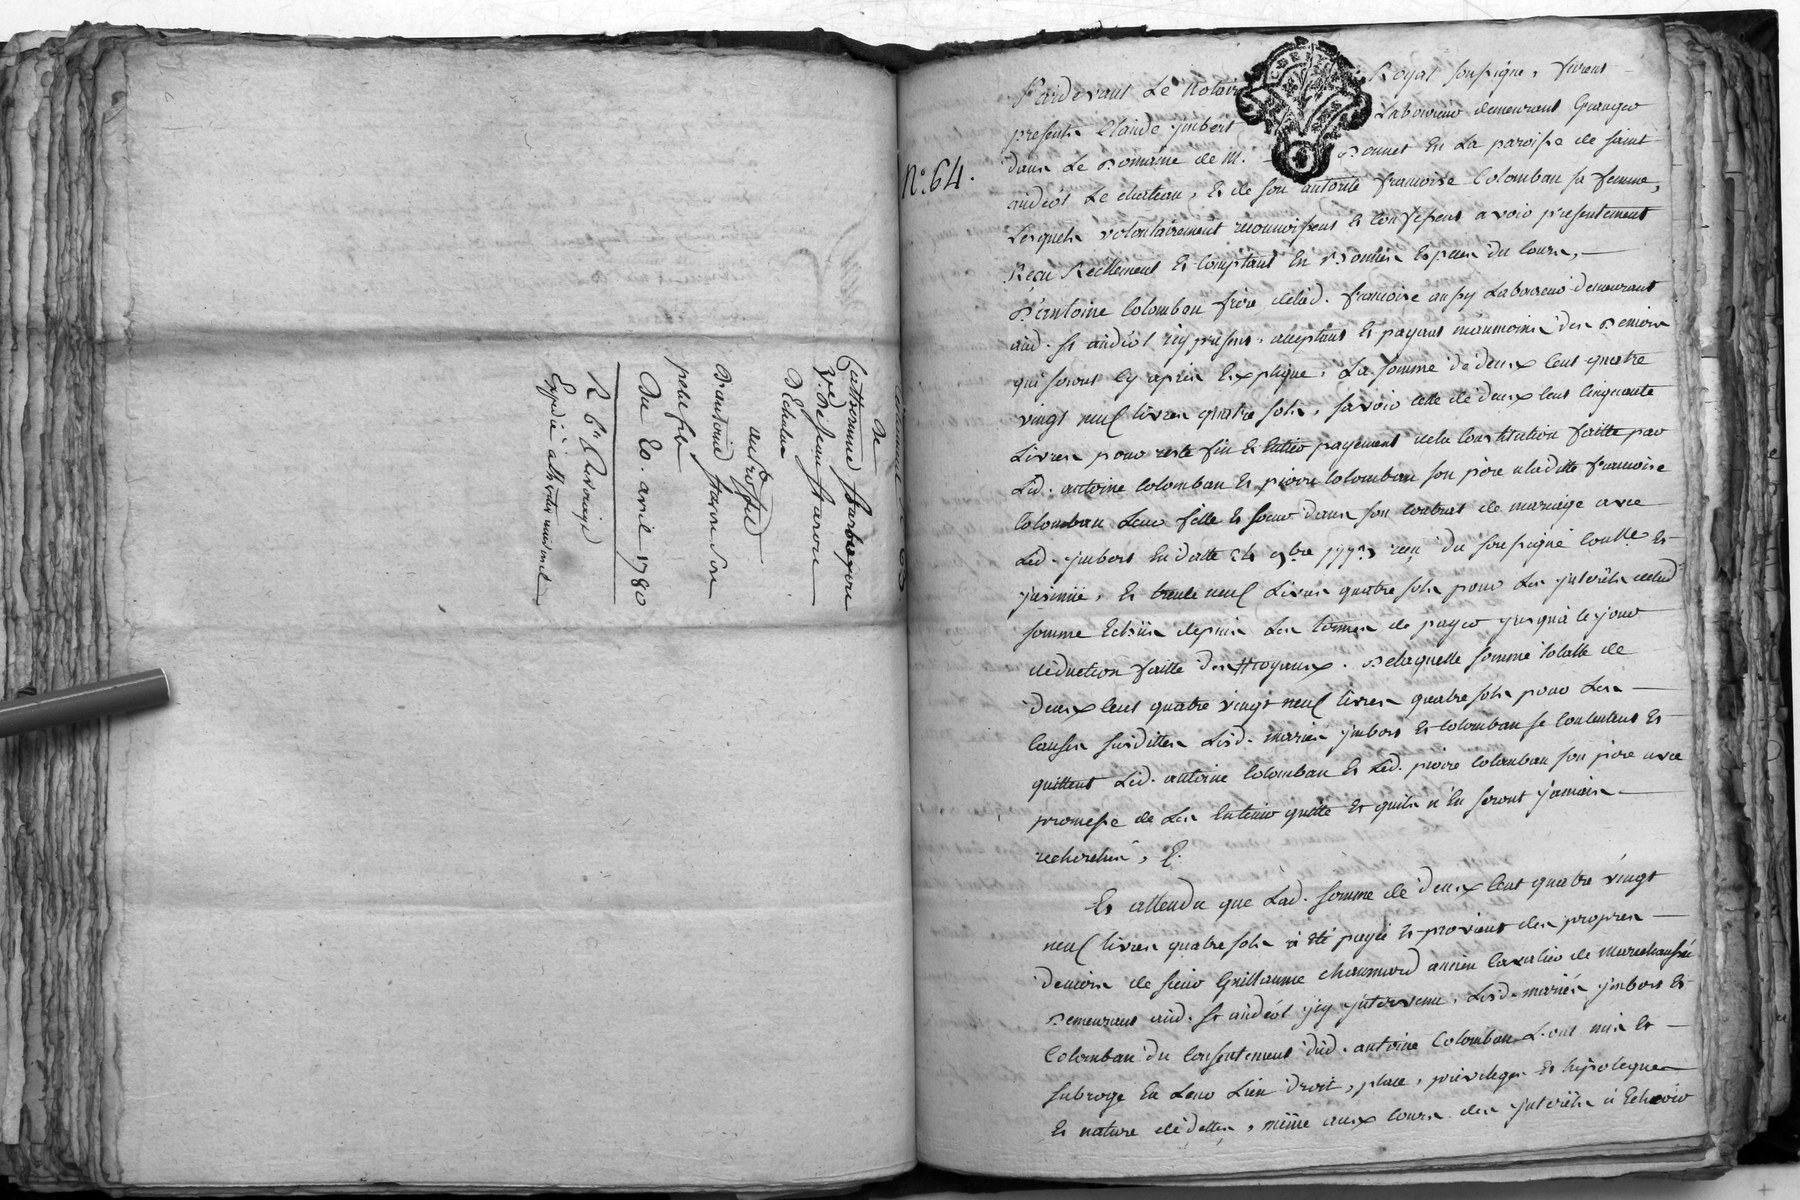 testament No 63
De
Catherine
Ve. De Jean Faron
D'Echalas
au profit
D'antoine Faron Son
petit fils
Du 20. avril 1780
Expédié
No. 64.
Pardevant Le Notaire Royal soussigné, furent
presents Claude ymbert Laboureur demeurant Granger
dans Le Domaine de M. Bonnet En La paroisse de saint
andéol Le chateau, Et de son autorité francoise Colomban sa femme,
Lesquels volontairement reconnoissent Et confessent avoir presentement
Reçu Réellement Et comptant En Bonnes Especes du cours,
D'antoine Colomban frère delad. francoise aussy Laboureur demeurant
aud. st andéol icy present, acceptant Et payant neanmoins des Deniers
qui seront cy après Expliqué, La somme de deux cent quatre
vingt neuf livres quatre sols, savoir celle de deux cent cinquante
Livres pour reste fin Et Entier payement de la Constitution faitte par
Led. antoine Colomban Et pierre Colomban son père a laditte francoise
Colomban Leur fille Et soeur dans son contrat de mariage avec
Led. ymbert En datte 9bre reçu du soussigné Conllé. Et
jnsinué, Et trente neuf Livres quatre sols pour Les jnterêts de lad.
somme Echüs depuis Les termes de payer jusqu'a ce jour
déduction faitte des Royaux. De laquelle somme totalle de
deux cent quatre vingt neuf livres quatre sols pour Les
causes susdittes Lesd. mariés ymbert Et Colomban se contentent Et
quittent Led. antoine Colomban Et Led. pierre Colomban son père avec
promesse de Les En tenir quitte Et quils n'En seront jamais
recherchés, &.
Et attendu que Lad. somme de deux cent quatre vingt
neuf livres quatre sols a été payée Et provient des propres
deniers de sieur Guillaume chaumard ancien Cavalier de marechaussée
Demeurant aud. st andéol jcy jntervenu, Lesd. mariés ymbert Et
Colomban du consentement dud. antoine Colomban L'ont mis Et
subrogé En Leur Lieu droit, place, privileges Et hipoteques
Et nature de dettes, même aux cours des jnterêts à Echeoir